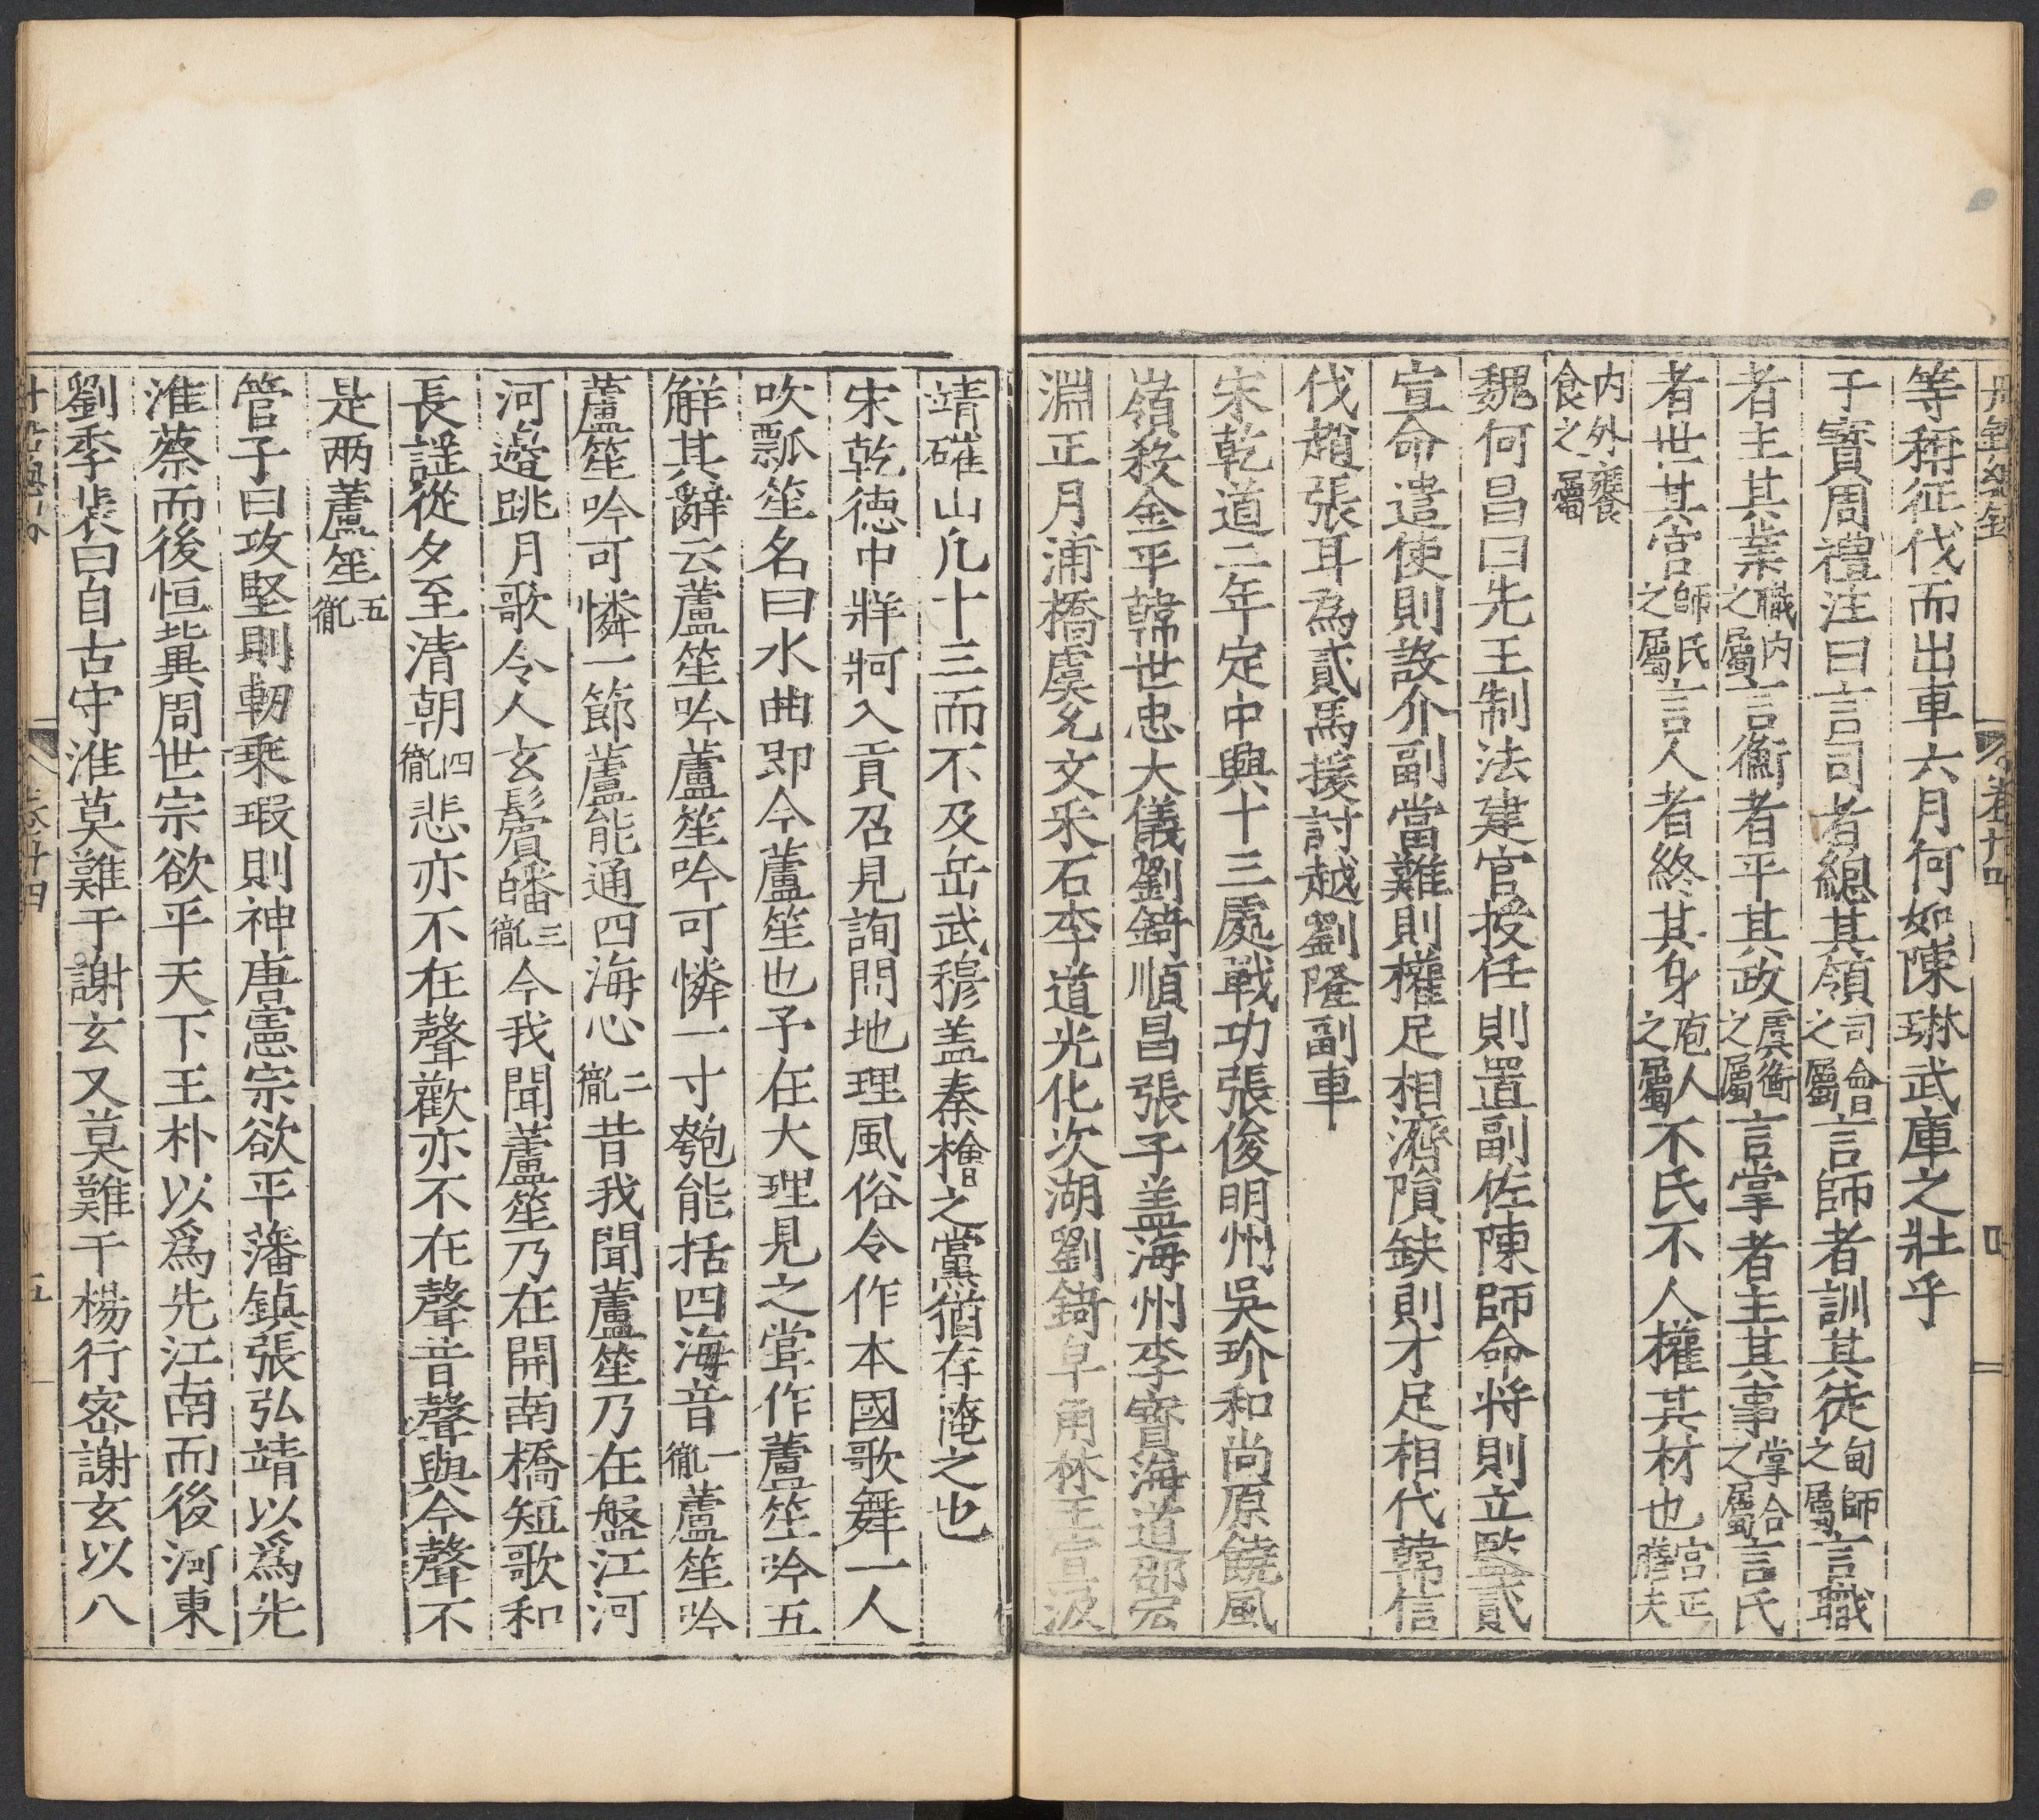 丹鉛總錄 卷廿四 四
等稱征伐而出車六月何如陳琳武庫之壯乎
于寶周禮注曰言司者總其領司會之屬言師者訓其徒甸師之屬言職
者主其業職內之屬言衡者平其政虞衡之屬言掌者主其事掌合之屬言氏
者世其官師氏之屬言人者終其身庖人之屬不氏不人權其材也宮正膳夫
内外饔食之屬
魏何昌曰先王制法建官授任則置副佐陳師命將則立監貳
宣命遣使則設介副當難則權足相濟隕缺則才足相代韓信
伐趙張耳為貳馬援討越劉隆副車
宋乾道二年定中興十三處戰功張俊明州吳玠和尚原饒風
嶺殺金平韓世忠大儀劉錡順昌張子盖海州李寶海道邵宏
淵正月浦橋虞允文采石李道光化次湖劉錡皁角林王宣汲
靖碓山凡十三而不及岳武穆盖秦檜之黨猶存淹之也
宋乾德中牂牁入貢召見詢問地理風俗令作本國歌舞一人
吹瓢笙名曰水曲即今蘆笙也予在大理見之甞作蘆笙吟五
解其辭云蘆笙吟蘆笙吟可憐一寸匏能括四海音一徹蘆笙吟
蘆笙吟可憐一節蘆能通四海心二徹昔我聞蘆笙乃在盤江河
河邉跳月歌令人玄鬢皤三徹今我聞蘆笙乃在開南橋短歌和
長謡從夕至清朝四徹悲亦不在聲歡亦不在聲音聲與今聲不
是兩蘆笙五徹
管子曰攻堅則軔乘瑕則神唐憲宗欲平藩鎮張弘靖以爲先
淮蔡而後恒冀周世宗欲平天下王朴以爲先江南而後河東
劉季裴曰自古守淮莫難于謝玄又莫難于楊行密謝玄以八
丹鉛總錄 卷廿四 五